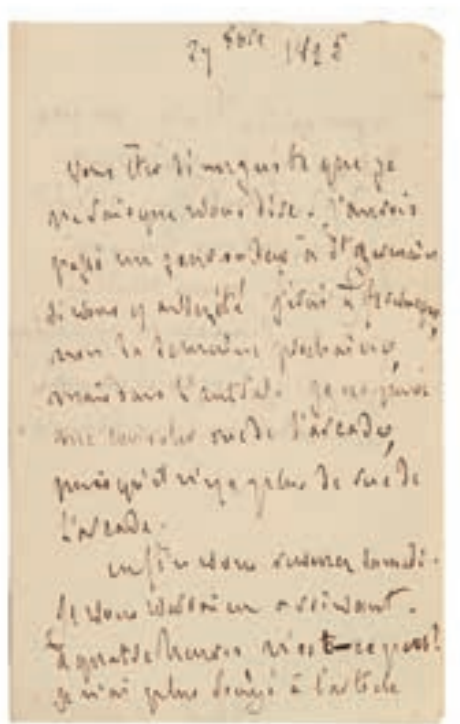 27 8bre 1825
Vous êtes si injuste que je
ne sais que vous dire. J'aurois
passé un jour ou deux à St germain
si vous y aviez été. j'irai à
non la semaine prochaine,
mais dans l'autre. je ne puis
me rue de l'arcade,
puisqu'il n'y a plus de rue de
l'arcade.
enfin vous venez samedi.
je vous verrai en arrivant.
à quatre heures n'est-ce pas?
je n'ai plus songé à l'article